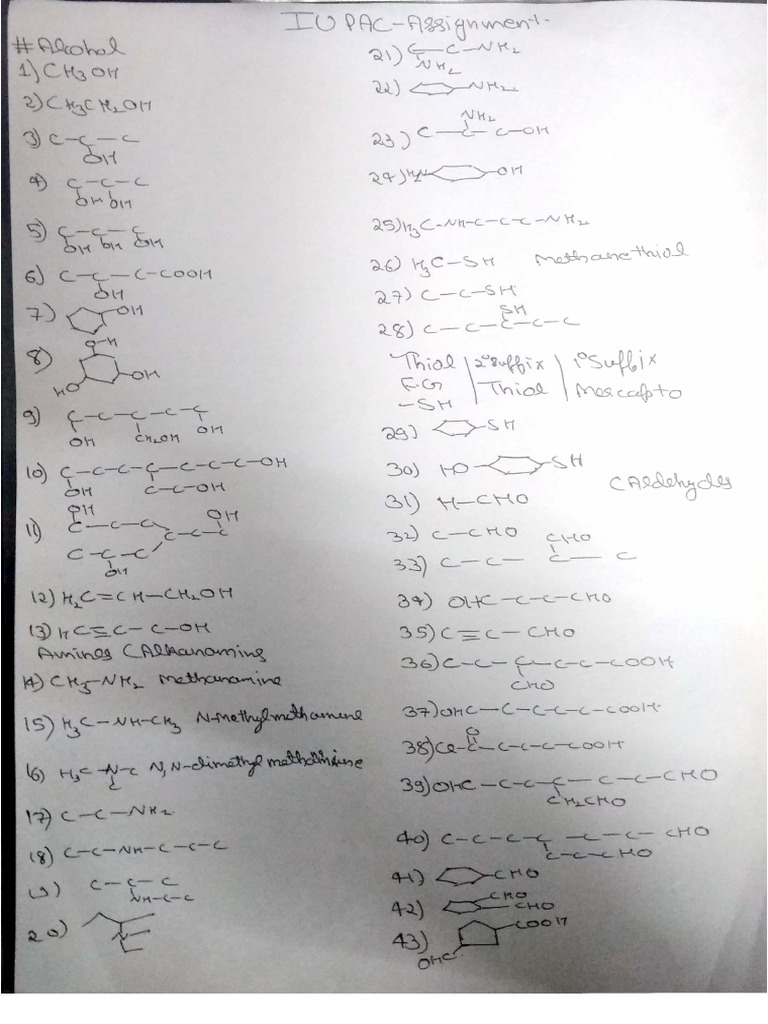 IUPAC-Assignment.
#Alcohol
1) CH3OH
2) CH3CH2OH
3) C-C-C
OH
4) C-C-C
OH OH
5) C-C-C
OH OH OH
6) C-C-C-COOH
OH
7) OH
8) O-H
HO OH
9) C-C-C-C-C
OH CH2OH OH
10) C-C-C-C-C-C-C-OH
OH C-C-OH
11) OH OH
C-C-C C-C-C
C-C-C
OH
12) H2C=CH-CH2OH
13) HC≡C-C-OH
Amines CAlkanamine
14) CH3-NH2 methanamine
15) H3C-NH-CH3 N-methylmethamine
16) H3C-N-C N,N-dimethyl
C
17) C-C-NH2
18) C-C-NH-C-C-C
C-C-C
NH-C-C
20)
N
21) C-C-NH2
NH2
22) NH2
NH2
23) C-C-C-OH
24) H2N OH
25) H3C-NH-C-C-C-NH2
26) H3C-SH Methanethiol
27) C-C-SH
SH
28) C-C-C-C-C
Thiol | 2° suffix | 1° Suffix
F.G | Thiol | Mercapto
-SH
29) SH
30) HO SH
CAldehydes
31) H-CHO
32) C-CHO
CHO
33) C-C-C-C
34) OHC-C-C-CHO
35) C≡C-CHO
36) C-C-C-C-C-COOH
CHO
37) OHC-C-C-C-C-COOH
O
38) C-C-C-C-COOH
39) OHC-C-C-C-C-C-CHO
CH2CHO
40) C-C-C-C-C-C-CHO
C-C-CHO
41) CHO
42) CHO
CHO
43) COOH
OHC